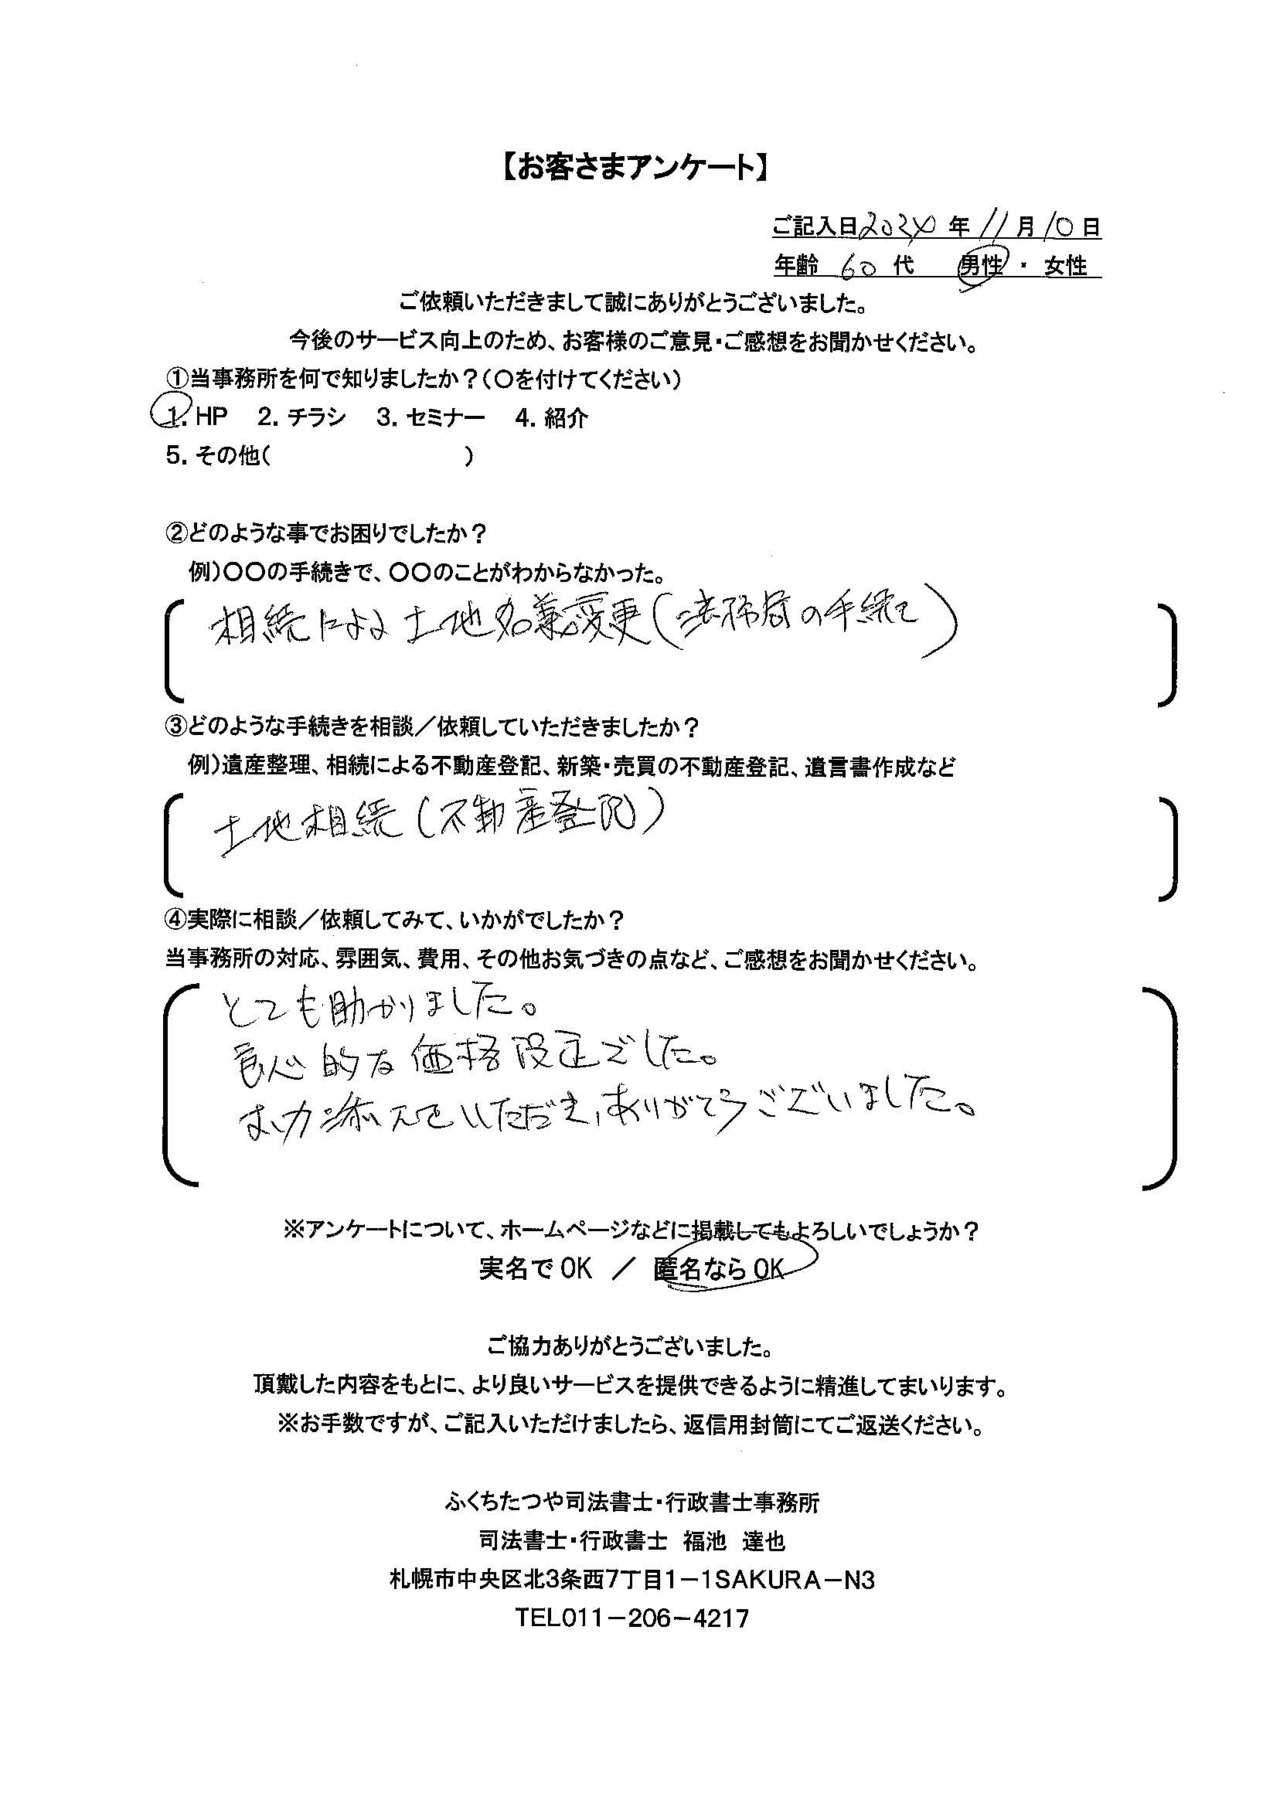 【お客さまアンケート】
ご記入日2024年11月10日
年齢 60代 男性・女性
ご依頼いただきまして誠にありがとうございました。
今後のサービス向上のため、お客様のご意見・ご感想をお聞かせください。
①当事務所を何で知りましたか？(○を付けてください)
1. HP 2. チラシ 3. セミナー 4. 紹介
5. その他( )
②どのような事でお困りでしたか？
例)○○の手続きで、○○のことがわからなかった。
相続による土地名義変更(法務局の手続き)
③どのような手続きを相談／依頼していただきましたか？
例)遺産整理、相続による不動産登記、新築・売買の不動産登記、遺言書作成など
土地相続(不動産登記)
④実際に相談／依頼してみて、いかがでしたか？
当事務所の対応、雰囲気、費用、その他お気づきの点など、ご感想をお聞かせください。
とても助かりました。
良心的な価格設定でした。
お力添えをいただき、ありがとうございました。
※アンケートについて、ホームページなどに掲載してもよろしいでしょうか？
実名でOK ／ 匿名ならOK
ご協力ありがとうございました。
頂戴した内容をもとに、より良いサービスを提供できるように精進してまいります。
※お手数ですが、ご記入いただけましたら、返信用封筒にてご返送ください。
ふくちたつや司法書士・行政書士事務所
司法書士・行政書士 福池 達也
札幌市中央区北3条西7丁目1－1SAKURA－N3
TEL011－206－4217